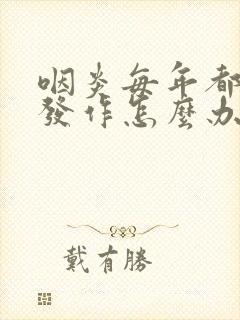 咽炎每年都
發作怎麼办
戴有勝